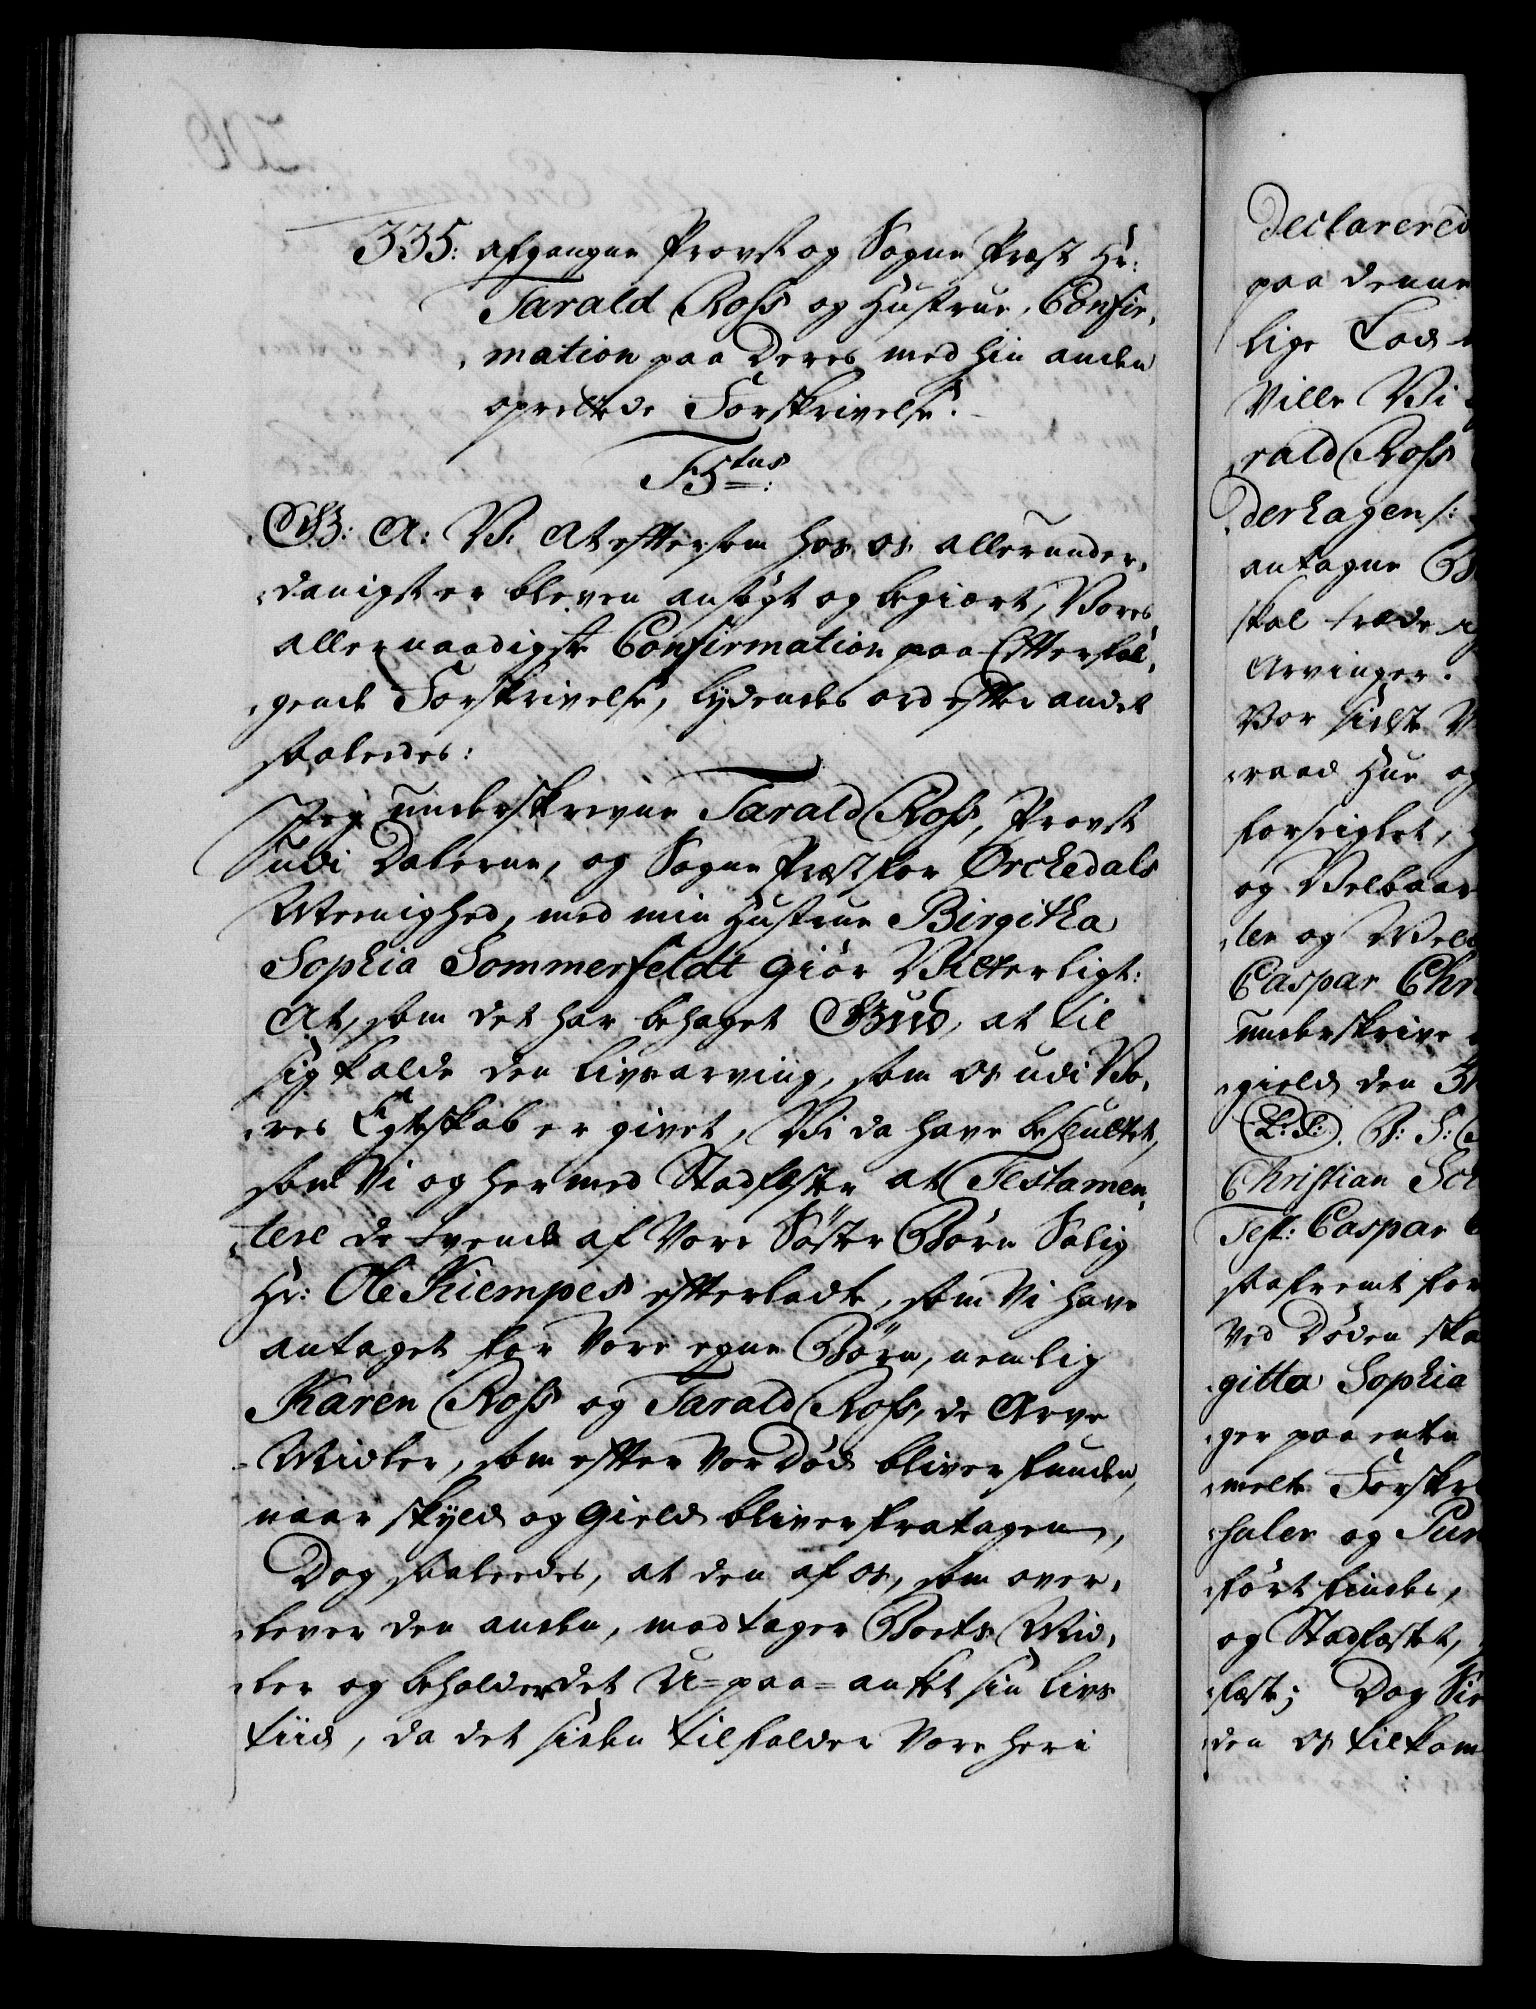 335: afgangne Provst og Sogne Præst Hr:
Tarald Ross og Hustrue, Confir„
„mation paa Deres med hin anden
oprettede Forskrivelse.
F5tus:
G: A: V. At eftersom hos os allerunder„
„danigst er bleven ansøgt og begiært, Vores
allernaadigste Confirmation paa Efterføl„
„gende Forskrivelse, lydendes ord efter andet
saaledes:
Jeg underskrevne Tarald Ross, Provst
udi Dalerne, og Sogne Præst for Orckedals
Meenighed, med min Hustrue Birgitha
Sophia Sommerfeldt giör Vitterligt:
At, som det har behaget Gud, at til
sig kalde den livsarving, som os udi Vo„
„res Egteskab er givet, Vi da have besluttet,
som Vi og hermed Stadfæste at Testamen„
„tere de tvende af Vore Söster Börn Salig
Hr: Ole Kiempes efterladte, som Vi have
antaget for Vore egne Börn, nemlig
Karen Ross og Tarald Ross, de Arve
Midler, som efter Vor Död bliver funden,
naar skyld og Gield bliver fratagen,
Dog saaledes, at den af os, som over„
„lever den anden, modtager Boets Mid„
„ler og beholder det U-paa-anket sin livs
tiid, da det siden tilfalder Vore heri
Declarered
paa denne
lige Lod
Ville Vi
rald Ross
derhagen /:
antagne
skal træde
Arvinger.
Vor sidste
„raad Hue og
forseiglet,
og Velbaar
„ler og
Caspar Chri
underskrive
„gield den
(L: S:). B: S:
Christian
Test: Caspar
saafremt for
ved Döden ska
„gitta Sophia
„ger paa
„melte Forskri
„haler og Pun
„fört findes,
og Stadfæstet,
„fæste; Dog
„den os tilkom